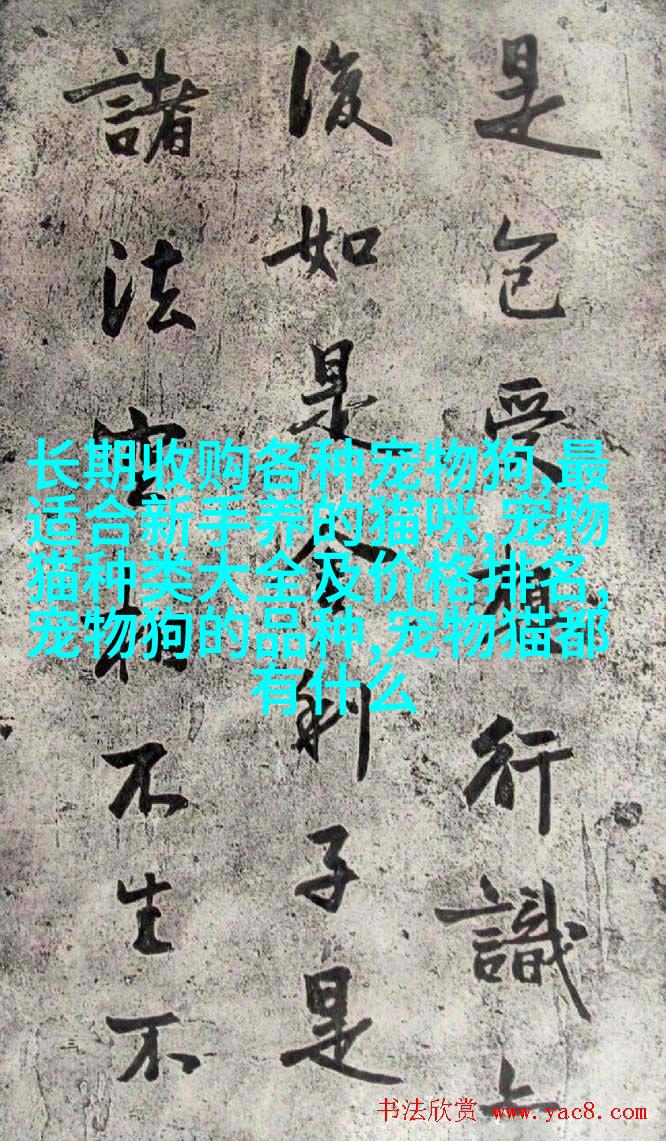 是色受想行識亦
復如是舍利子是
諸法空相不生不
长期收购各种宠物狗,最
适合新手养的猫咪,宠物
猫种类大全及价格排名,
宠物狗的品种,宠物猫都
有什么
书法欣赏 www.yac8.com